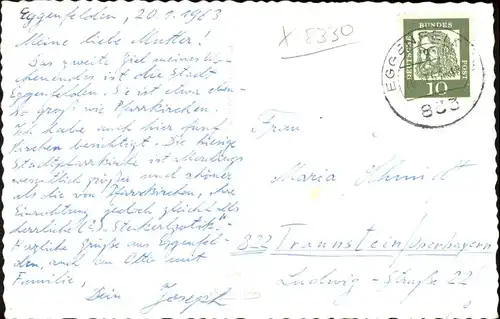 Eggenfelden, 20.1.1963
Meine liebe Mutter!
Das zweite Ziel meines Wo-
chenendes ist die Stadt
Eggenfelden. Sie ist etwa eben-
so groß wie Pfarrkirchen.
Ich habe auch hier fünf
Kirchen besichtigt. Die hiesige
Stadtpfarrkirche ist allerdings
wesentlich größer und schöner
als die von Pfarrkirchen, ihre
Einrichtung jedoch gleichfalls
Herzliche Grüße aus Eggenfel-
den, auch an Otto mit
Familie,
Dein Joseph
X 8330
DEUTSCHE BUNDESPOST
10
EGGENFELDEN
833
Frau
Maria Schmidt
822 Traunstein/Oberbayern
Ludwig-Straße 22